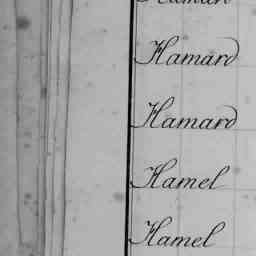 Hamard
Hamard
Hamel
Hamel